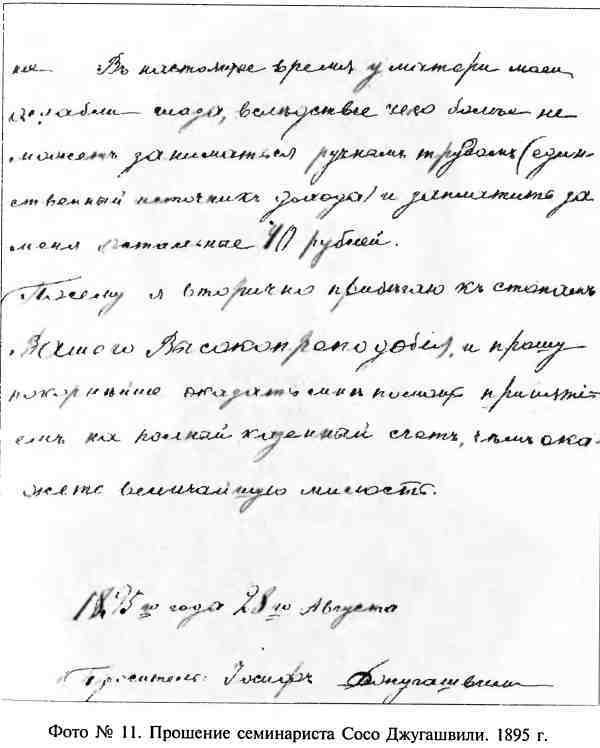 Въ настоящее время у матери моей
ослабли глаза, вслѣдствіе чего болѣе не
можетъ заниматься ручнымъ трудомъ (един-
ственный источникъ дохода) и заплатить за
меня остальные 40 рублей.
Посему я вторично прибѣгаю къ стопамъ
Вашего Высокопреподобія, и прошу
покорнѣйше оказать мнѣ помощь принятi-
емъ на полный казенный счетъ, чѣмъ ока-
жете величайшую милость.
1895го года 28го Августа
Проситель Іосифъ Джугашвили
Фото № 11. Прошение семинариста Сосо Джугашвили. 1895 г.